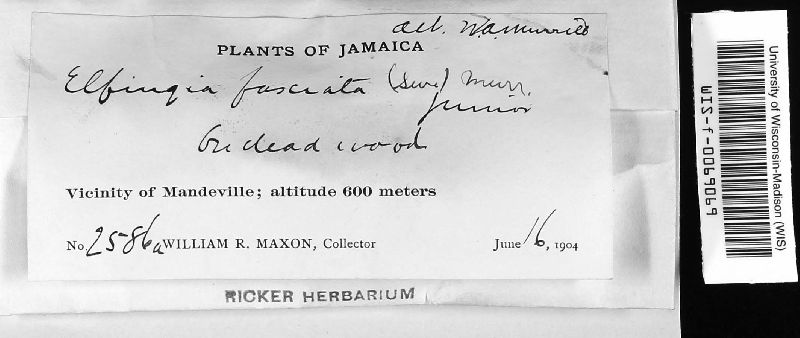 det. W.A. Murrill
PLANTS OF JAMAICA
Elfingia fasciata (Sw.) Murr.
Junior
On dead wood
Vicinity of Mandeville; altitude 600 meters
No. 2586a WILLIAM R. MAXON, Collector June 16, 1904
RICKER HERBARIUM
University of Wisconsin-Madison (WIS)
WIS-f-0069069